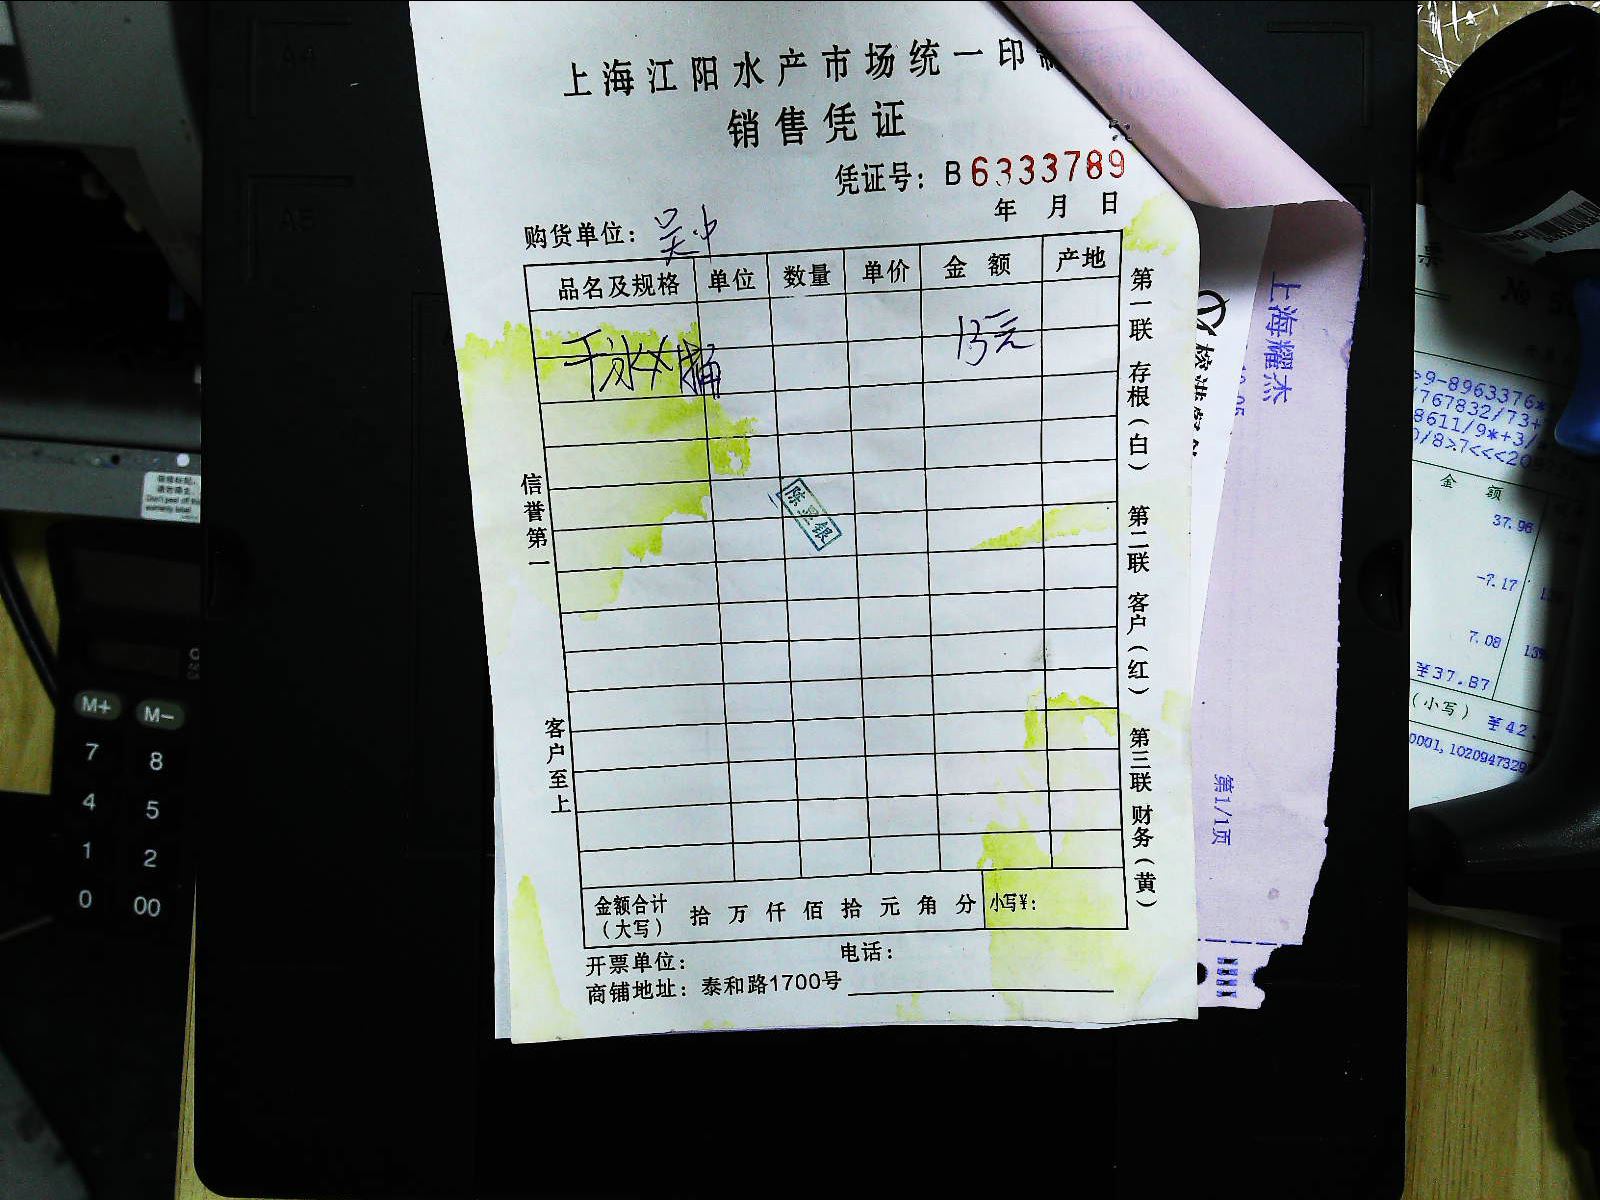 上海江阳水产市场统一印
销售凭证
凭证号：B6333789
年 月 日
购货单位：吴中
品名及规格 单位 数量 单价 金 额 产地
13元
陈显银
信誉第一
客户至上
第一联 存根（白） 第二联 客户（红） 第三联 财务（黄）
金额合计（大写） 拾 万 仟 佰 拾 元 角 分 小写¥：
开票单位： 电话：
商铺地址：泰和路1700号
上海耀杰
第1/1页
金 额
37.96
-7.17
7.08
¥37.87
（小写） ¥42
M+ M-
7 8
4 5
1 2
0 00
A4
A5